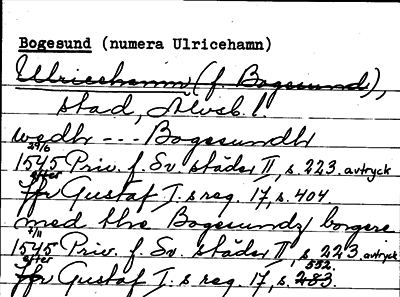 Bogesund (numera Ulricehamn)
Ulricehamn (f. Bogesund),
stad, Älvsb. l.
wedhr --- Bogesundh
29/6
1545 Priv. f. Sv. städer II, s. 223. avtryck
efter
Jfr Gustaf I.s reg. 17, s. 404.
med the Bogesundz borgere
4/11
1545 Priv. f. Sv. städer II, s. 223 avtryck
efter 552.
Jfr Gustaf I.s reg. 17, s. 283.